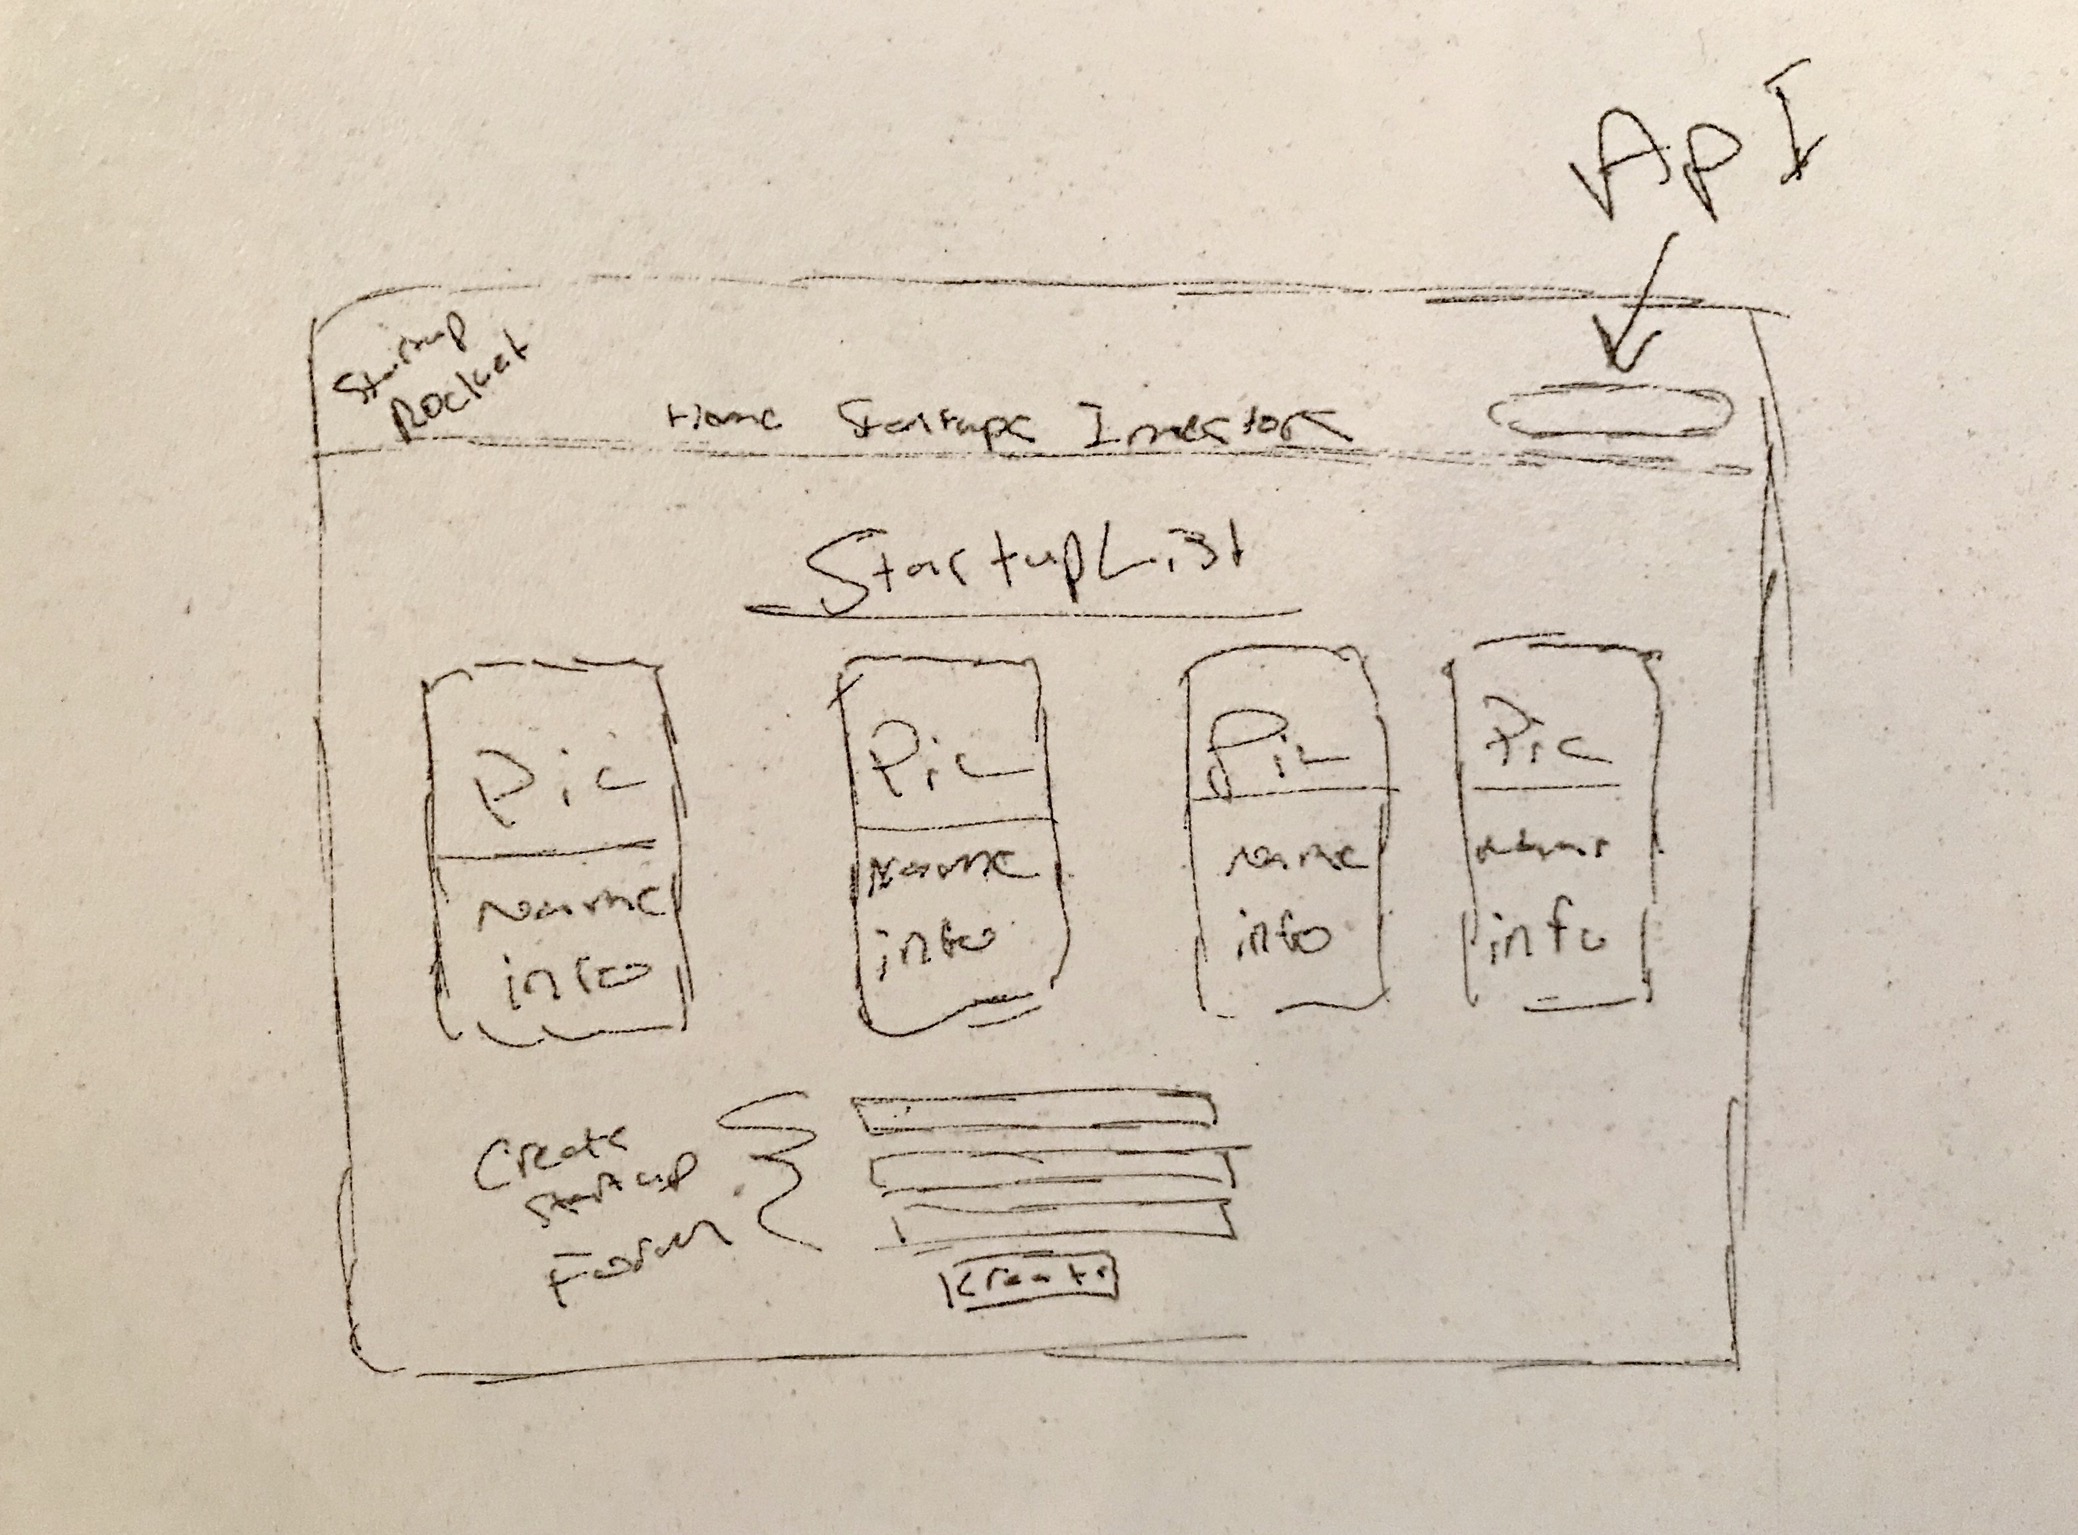 ApI
Startup
Rocket
Home Startups Investors
Startup List
Pic
Pic
Pic
Pic
Name
info
Name
info
name
info
info
Create
Startup
Form
Kreate